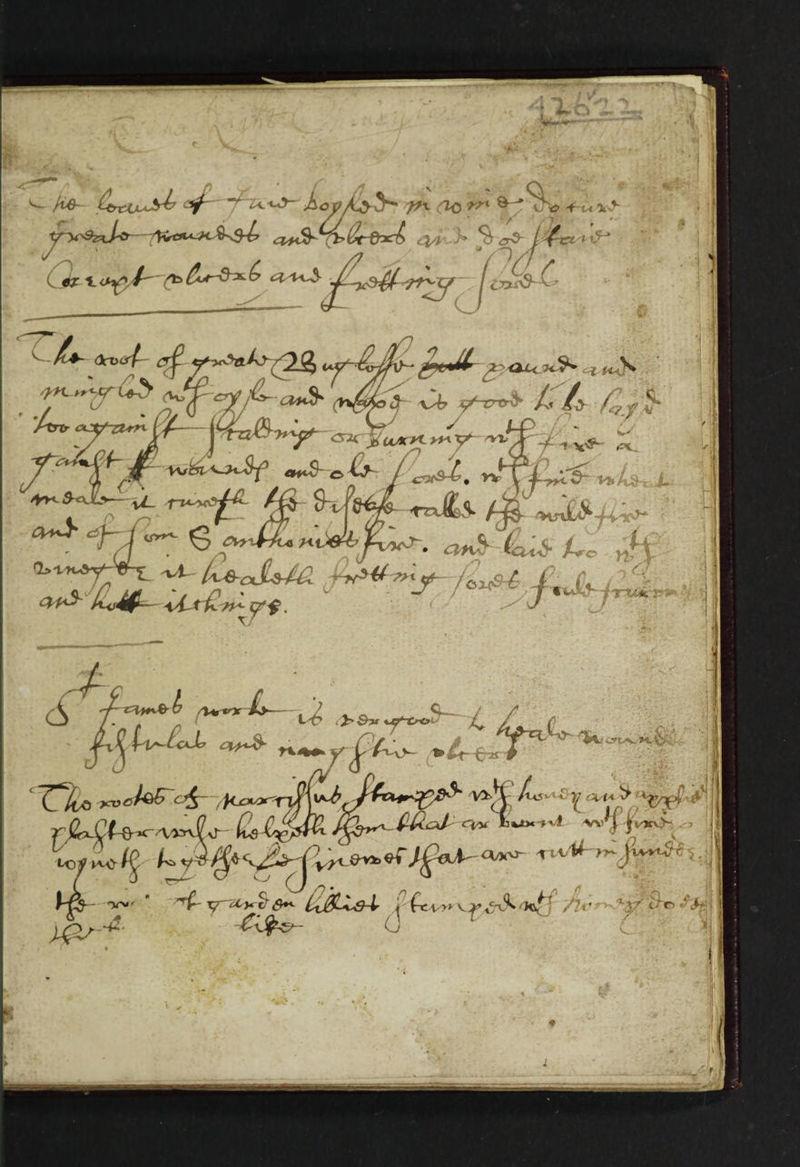 42622
The leaues of Iuie boyled in wine doe cure
greate woundes and vlcers and doe staie
Corrupt vlcers and fretting sores
The root of greate Buglosse pound and
mingled wth oyle and is good to be layd
too against scalding or burning wth fire a
gainst wounds and ole sores. wth fine wheat
meale it cureth the disease called the wild fire
and of som S anthonies fire. and laid too wth
vineger it healeth fretting sores
and hott itchings.
S James worte is very good to heale wounds
fistulas and vlcers
The rootes of narcissus stamped wth honey and applied
plaster wise helpeth them that ar burnt wth fire
ioyneth together sinewes that are cutt in sunder
the of garden lillies stamped wth honey doeth
the like